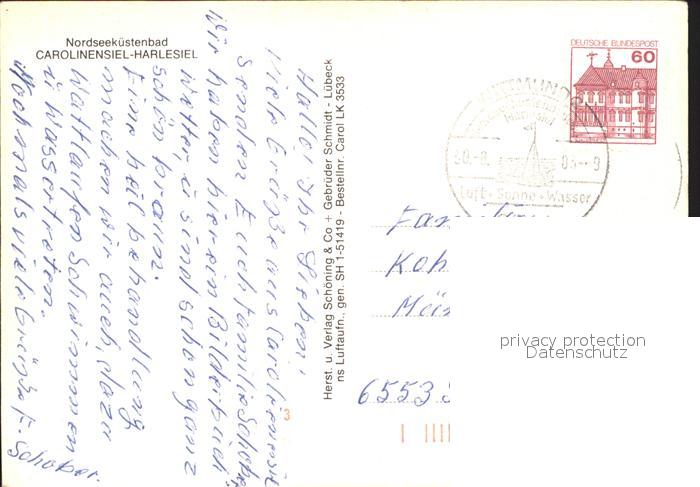 Nordseeküstenbad
CAROLINENSIEL-HARLESIEL
Hallo! Ihr Lieben!
Viele Grüße aus Carolinensiel
senden Euch Familie Schober
Wir haben hier ein Bilderbuch
Wetter, u sind schon ganz
schön braun.
Eine heilbehandlung
machen wir auch, dazu
Wattlaufen Schwimmen
u Wassertreten.
Nochmals viele Grüße F.
Schober.
Herst. u. Verlag Schöning & Co + Gebrüder Schmidt - Lübeck
ns Luftaufn., gen. SH 1-51419 - Bestellnr. Carol LK 3533
DEUTSCHE BUNDESPOST
60
WITTMUND
Harlesiel
Luft · Sonne · Wasser
Fam
Koh
6553
3
privacy protection
Datenschutz